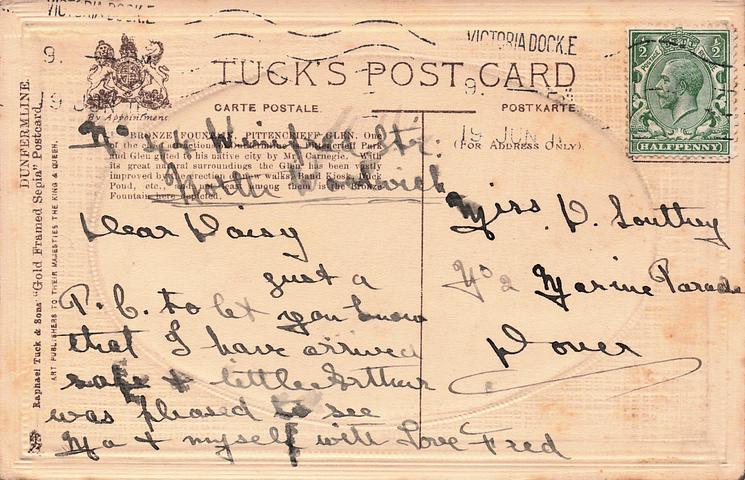 VICTORIA DOCK.E
VICTORIA DOCK.E
9.
9.
19 JUN
19 JUN 11
TUCK'S POST CARD
By Appointment
CARTE POSTALE
POSTKARTE.
(FOR ADDRESS ONLY).
HALFPENNY
DUNFERMLINE.
Raphael Tuck & Sons' "Gold Framed Sepia" Postcard
ART PUBLISHERS TO THEIR MAJESTIES THE KING & QUEEN.
BRONZE FOUNTAIN, PITTENCRIEFF GLEN. One
of the Pittencrieff Park
and Glen gifted to his native city by Mr. Carnegie. With
great natural surroundings the Glen has been vastly
improved by new walks, Band Kiosk, Duck
Pond, etc., among them is the Bronze
Fountain here depicted.
No Str.
North Woolwich
Dear Daisy
just a
P.C. to let you know
that I have arrived
safe & little Arthur
was pleased to see
Ma & myself with Love Fred
Miss D. Southey
No 2 Marine Parade
Dover